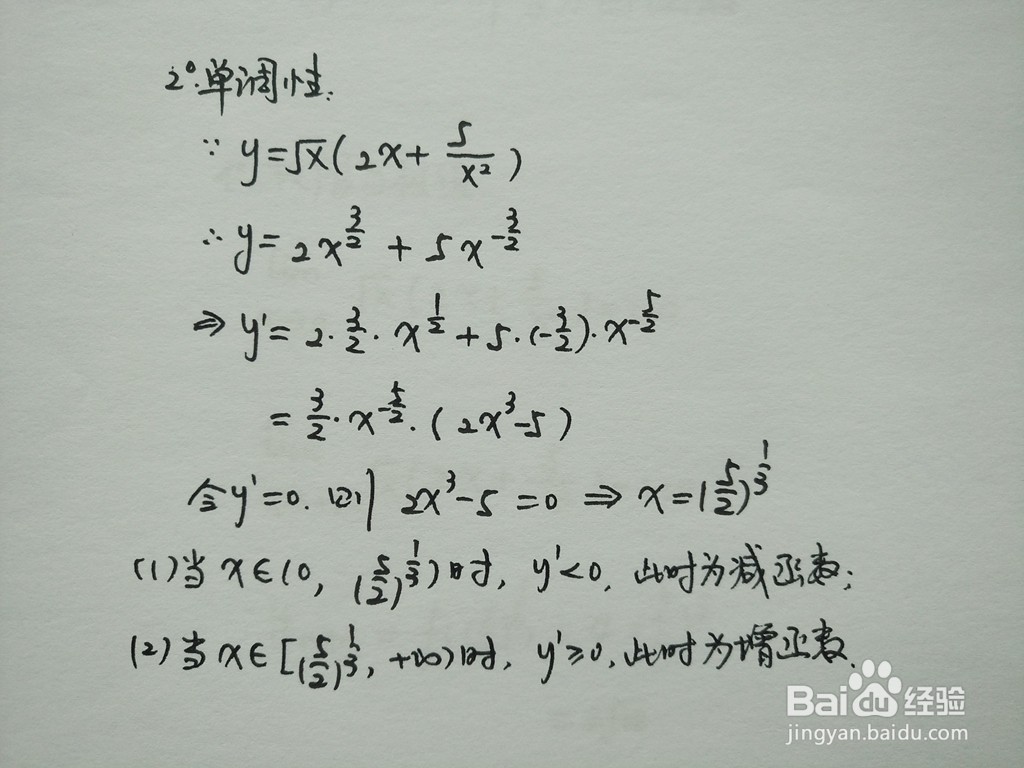 2°.单调性:
∵ y=√x(2x+5/x²)
∴ y=2x^(3/2)+5x^(-3/2)
⇒ y'=2·3/2·x^(1/2)+5·(-3/2)·x^(-5/2)
=3/2·x^(-5/2)·(2x³-5)
令y'=0.则 2x³-5=0 ⇒ x=(5/2)^(1/3)
(1)当x∈(0,(5/2)^(1/3))时,y'<0,此时为减函数;
(2)当x∈[(5/2)^(1/3),+∞)时,y'≥0,此时为增函数.
Baidu经验
jingyan.baidu.com